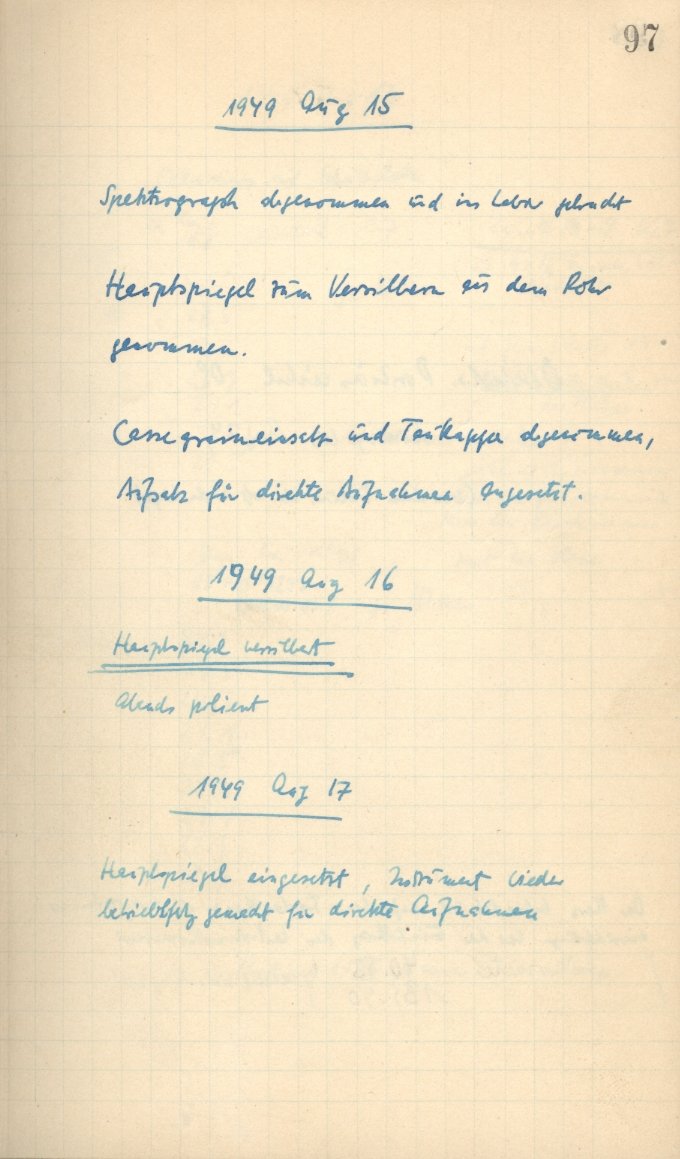 97
1949 Aug 15
Spektrograph abgenommen und ins Labor gebracht
Hauptspiegel zum Versilbern aus dem Rohr
genommen.
Cassegraineinsatz und Taukappe abgenommen,
Aufsatz für direkte Aufnahmen angesetzt.
1949 Aug 16
Hauptspiegel versilbert
Abends poliert
1949 Aug 17
Hauptspiegel eingesetzt, Instrument wieder
gemacht für direkte Aufnahmen